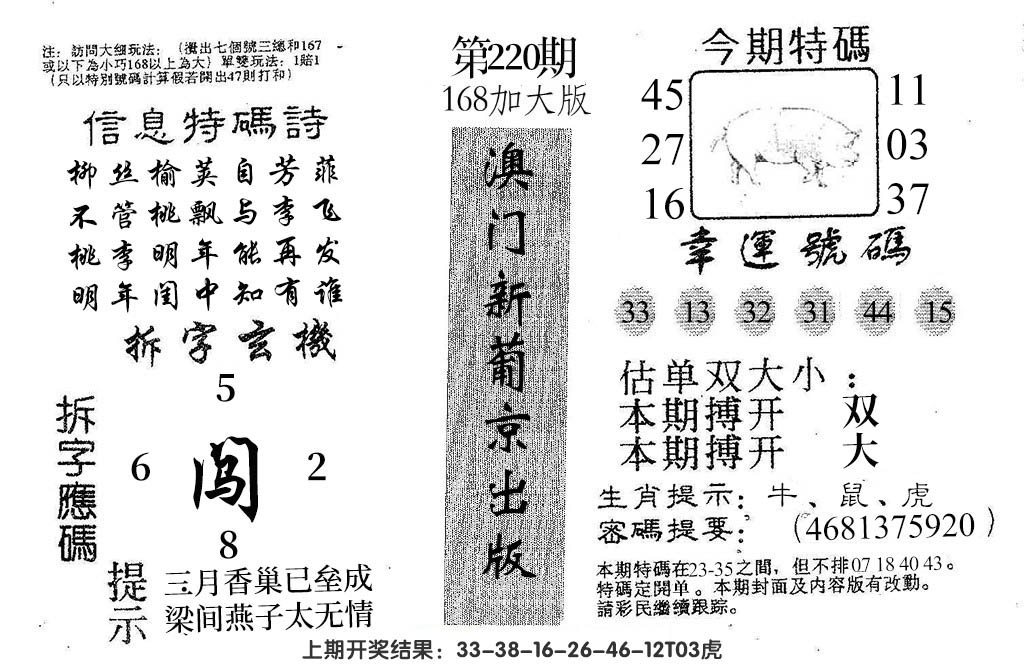 注：訪問大细玩法：（攪出七個號三總和167
或以下為小巧168以上為大）單雙玩法：1賠1
（只以特別號碼計算假若開出47則打和）
信息特碼詩
柳丝榆荚自芳菲
不管桃飘与李飞
桃李明年能再发
明年闺中知有谁
拆字玄機
拆字應碼
5
6 闯 2
8
提示
三月香巢已垒成
梁间燕子太无情
第220期
168加大版
澳门新葡京出版
今期特碼
45 11
27 03
16 37
幸運號碼
33 13 32 31 44 15
估单双大小：
本期搏开 双
本期搏开 大
生肖提示：牛、鼠、虎
密碼提要：（4681375920）
本期特碼在23-35之間，但不排07 18 40 43。
特碼定開单。本期封面及内容版有改動。
請彩民繼續跟踪。
上期开奖结果：33-38-16-26-46-12T03虎